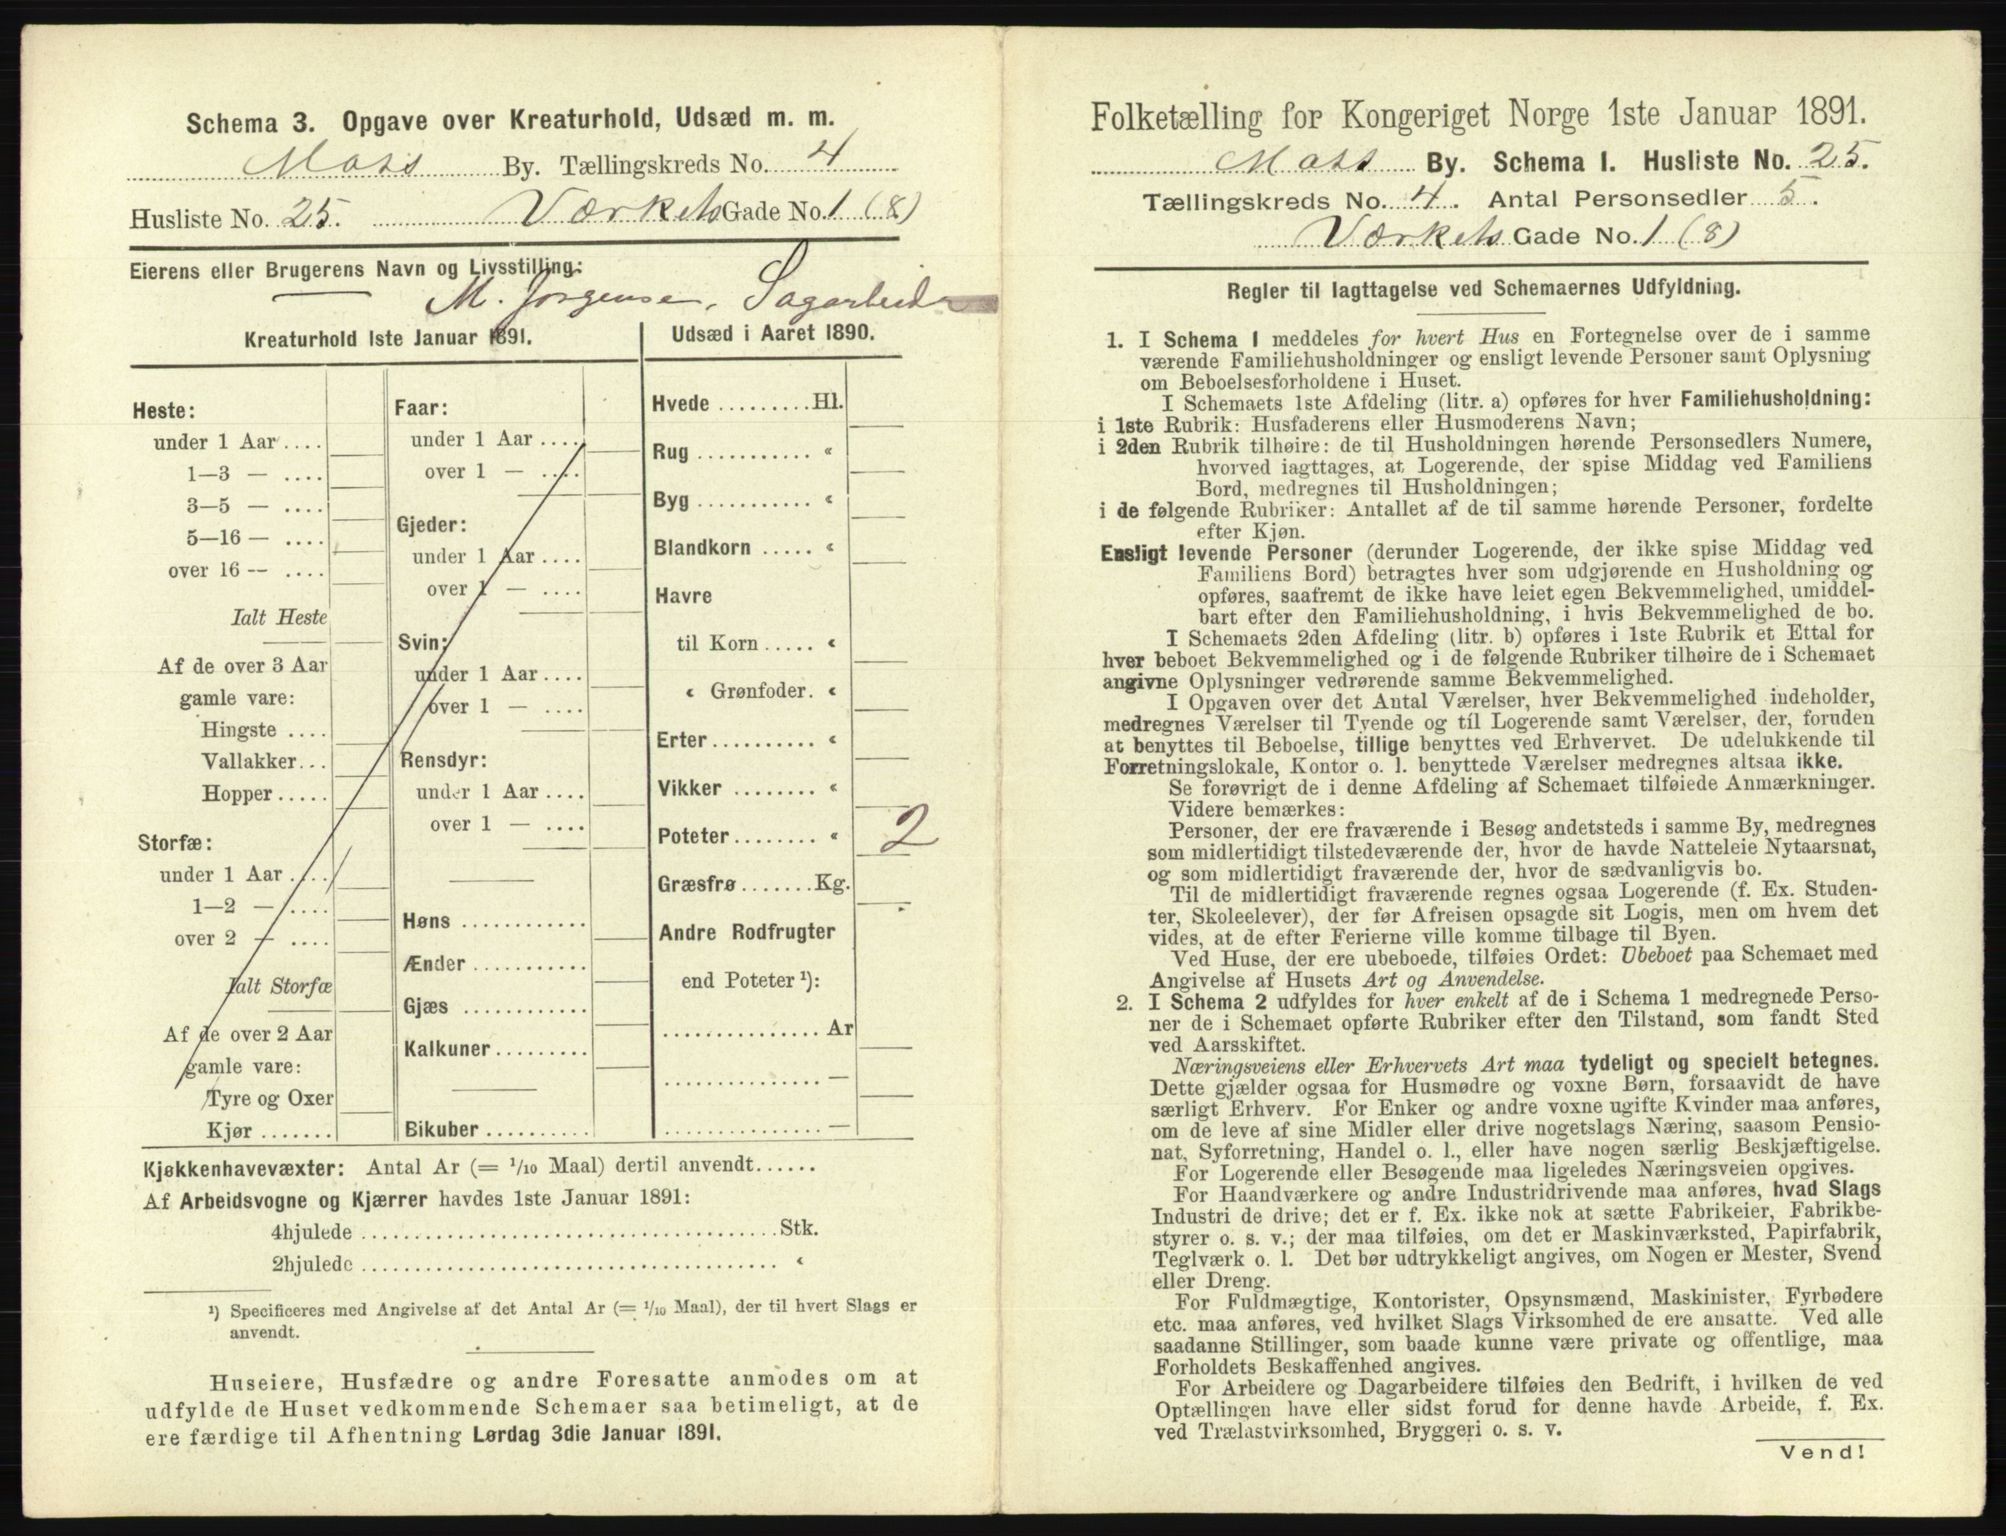 Schema 3. Opgave over Kreaturhold, Udsæd m. m.
Moss By. Tællingskreds No. 4
Husliste No. 25. Værkets Gade No. 1 (8)
Eierens eller Brugerens Navn og Livsstilling:
M. Jørgensen, Sagarbeider
Kreaturhold 1ste Januar 1891.
Heste:
under 1 Aar ....
1—3 — ....
3—5 — ....
5—16 — ....
over 16 — ....
Ialt Heste
Af de over 3 Aar
gamle vare:
Hingste ....
Vallakker...
Hopper .....
Storfæ:
under 1 Aar ....
1—2 — ....
over 2 — ....
Ialt Storfæ
Af de over 2 Aar
gamle vare:
Tyre og Oxer
Kjør .......
Faar:
under 1 Aar ....
over 1 — ....
Gjeder:
under 1 Aar ....
over 1 — ....
Svin:
under 1 Aar ....
over 1 — ....
Rensdyr:
under 1 Aar ....
over 1 — ....
Høns ............
Ænder ...........
Gjæs ............
Kalkuner.........
Bikuber ..........
Udsæd i Aaret 1890.
Hvede .........Hl.
Rug ........... «
Byg ........... «
Blandkorn ..... «
Havre
til Korn ..... «
« Grønfoder. «
Erter.......... «
Vikker ........ «
Poteter........ « 2
Græsfrø .......Kg.
Andre Rodfrugter
end Poteter ¹):
............... Ar
............... —
............... —
Kjøkkenhavevæxter: Antal Ar (= 1/10 Maal) dertil anvendt......
Af Arbeidsvogne og Kjærrer havdes 1ste Januar 1891:
4hjulede .......................................Stk.
2hjulede ....................................... «
¹) Specificeres med Angivelse af det Antal Ar (= 1/10 Maal), der til hvert Slags er
anvendt.
Huseiere, Husfædre og andre Foresatte anmodes om at
udfylde de Huset vedkommende Schemaer saa betimeligt, at de
ere færdige til Afhentning Lørdag 3die Januar 1891.
Folketælling for Kongeriget Norge 1ste Januar 1891.
Moss By. Schema 1. Husliste No. 25.
Tællingskreds No. 4. Antal Personsedler 5.
Værkets Gade No. 1 (8)
Regler til Iagttagelse ved Schemaernes Udfyldning.
1. I Schema 1 meddeles for hvert Hus en Fortegnelse over de i samme
værende Familiehusholdninger og ensligt levende Personer samt Oplysning
om Beboelsesforholdene i Huset.
I Schemaets 1ste Afdeling (litr. a) opføres for hver Familiehusholdning:
i 1ste Rubrik: Husfaderens eller Husmoderens Navn;
i 2den Rubrik tilhøire: de til Husholdningen hørende Personsedlers Numere,
hvorved iagttages, at Logerende, der spise Middag ved Familiens
Bord, medregnes til Husholdningen;
i de følgende Rubriker: Antallet af de til samme hørende Personer, fordelte
efter Kjøn.
Ensligt levende Personer (derunder Logerende, der ikke spise Middag ved
Familiens Bord) betragtes hver som udgjørende en Husholdning og
opføres, saafremt de ikke have leiet egen Bekvemmelighed, umiddel-
bart efter den Familiehusholdning, i hvis Bekvemmelighed de bo.
I Schemaets 2den Afdeling (litr. b) opføres i 1ste Rubrik et Ettal for
hver beboet Bekvemmelighed og i de følgende Rubriker tilhøire de i Schemaet
angivne Oplysninger vedrørende samme Bekvemmelighed.
I Opgaven over det Antal Værelser, hver Bekvemmelighed indeholder,
medregnes Værelser til Tyende og til Logerende samt Værelser, der, foruden
at benyttes til Beboelse, tillige benyttes ved Erhvervet. De udelukkende til
Forretningslokale, Kontor o. l. benyttede Værelser medregnes altsaa ikke.
Se forøvrigt de i denne Afdeling af Schemaet tilføiede Anmærkninger.
Videre bemærkes:
Personer, der ere fraværende i Besøg andetsteds i samme By, medregnes
som midlertidigt tilstedeværende der, hvor de havde Natteleie Nytaarsnat,
og som midlertidigt fraværende der, hvor de sædvanligvis bo.
Til de midlertidigt fraværende regnes ogsaa Logerende (f. Ex. Studen-
ter, Skoleelever), der før Afreisen opsagde sit Logis, men om hvem det
vides, at de efter Ferierne ville komme tilbage til Byen.
Ved Huse, der ere ubeboede, tilføies Ordet: Ubeboet paa Schemaet med
Angivelse af Husets Art og Anvendelse.
2. I Schema 2 udfyldes for hver enkelt af de i Schema 1 medregnede Perso-
ner de i Schemaet opførte Rubriker efter den Tilstand, som fandt Sted
ved Aarsskiftet.
Næringsveiens eller Erhvervets Art maa tydeligt og specielt betegnes.
Dette gjælder ogsaa for Husmødre og voxne Børn, forsaavidt de have
særligt Erhverv. For Enker og andre voxne ugifte Kvinder maa anføres,
om de leve af sine Midler eller drive nogetslags Næring, saasom Pensio-
nat, Syforretning, Handel o. l., eller have nogen særlig Beskjæftigelse.
For Logerende eller Besøgende maa ligeledes Næringsveien opgives.
For Haandværkere og andre Industridrivende maa anføres, hvad Slags
Industri de drive; det er f. Ex. ikke nok at sætte Fabrikeier, Fabrikbe-
styrer o. s. v.; der maa tilføies, om det er Maskinværksted, Papirfabrik,
Teglværk o. l. Det bør udtrykkeligt angives, om Nogen er Mester, Svend
eller Dreng.
For Fuldmægtige, Kontorister, Opsynsmænd, Maskinister, Fyrbødere
etc. maa anføres, ved hvilket Slags Virksomhed de ere ansatte. Ved alle
saadanne Stillinger, som baade kunne være private og offentlige, maa
Forholdets Beskaffenhed angives.
For Arbeidere og Dagarbeidere tilføies den Bedrift, i hvilken de ved
Optællingen have eller sidst forud for denne havde Arbeide, f. Ex.
ved Trælastvirksomhed, Bryggeri o. s. v.
Vend!